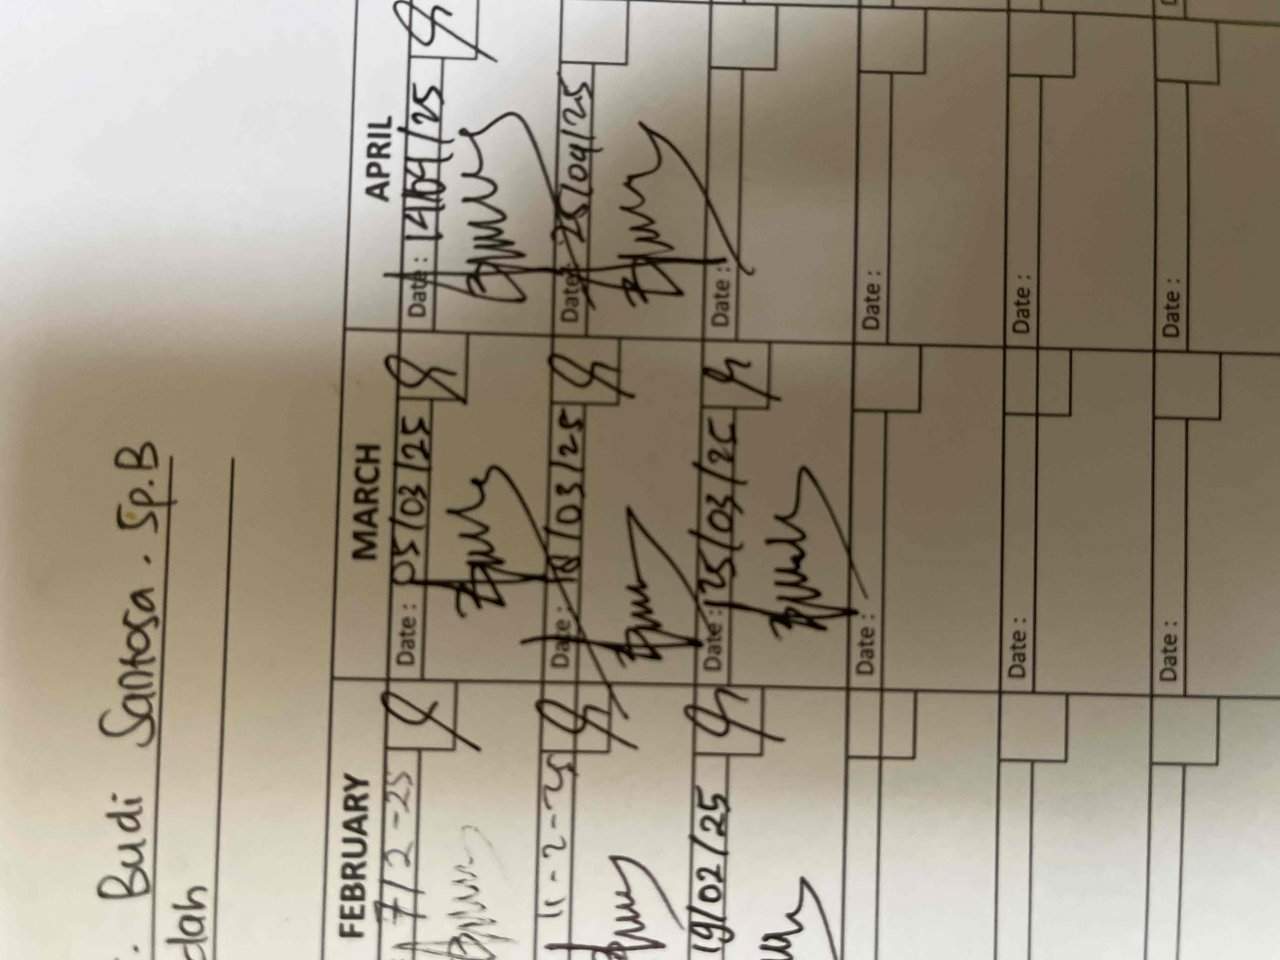 . Budi Santosa . Sp.B
dah
FEBRUARY MARCH APRIL
7/2-25 Date : 05/03/25 Date : 14/04/25
11-2-25 Date : /03/25 Date : 25/04/25
19/02/25 Date : 25/03/25 Date :
Date : Date :
Date : Date :
Date : Date :